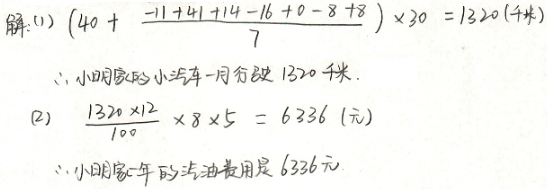 解:(1) (40 + (-11+41+14-16+0-8+8)/7) ×30 =1320(千米)
∴小明家的小汽车一月行驶1320千米.
(2) (1320×12)/100 ×8×5 = 6336 (元)
∴小明家一年的汽油费用是6336元